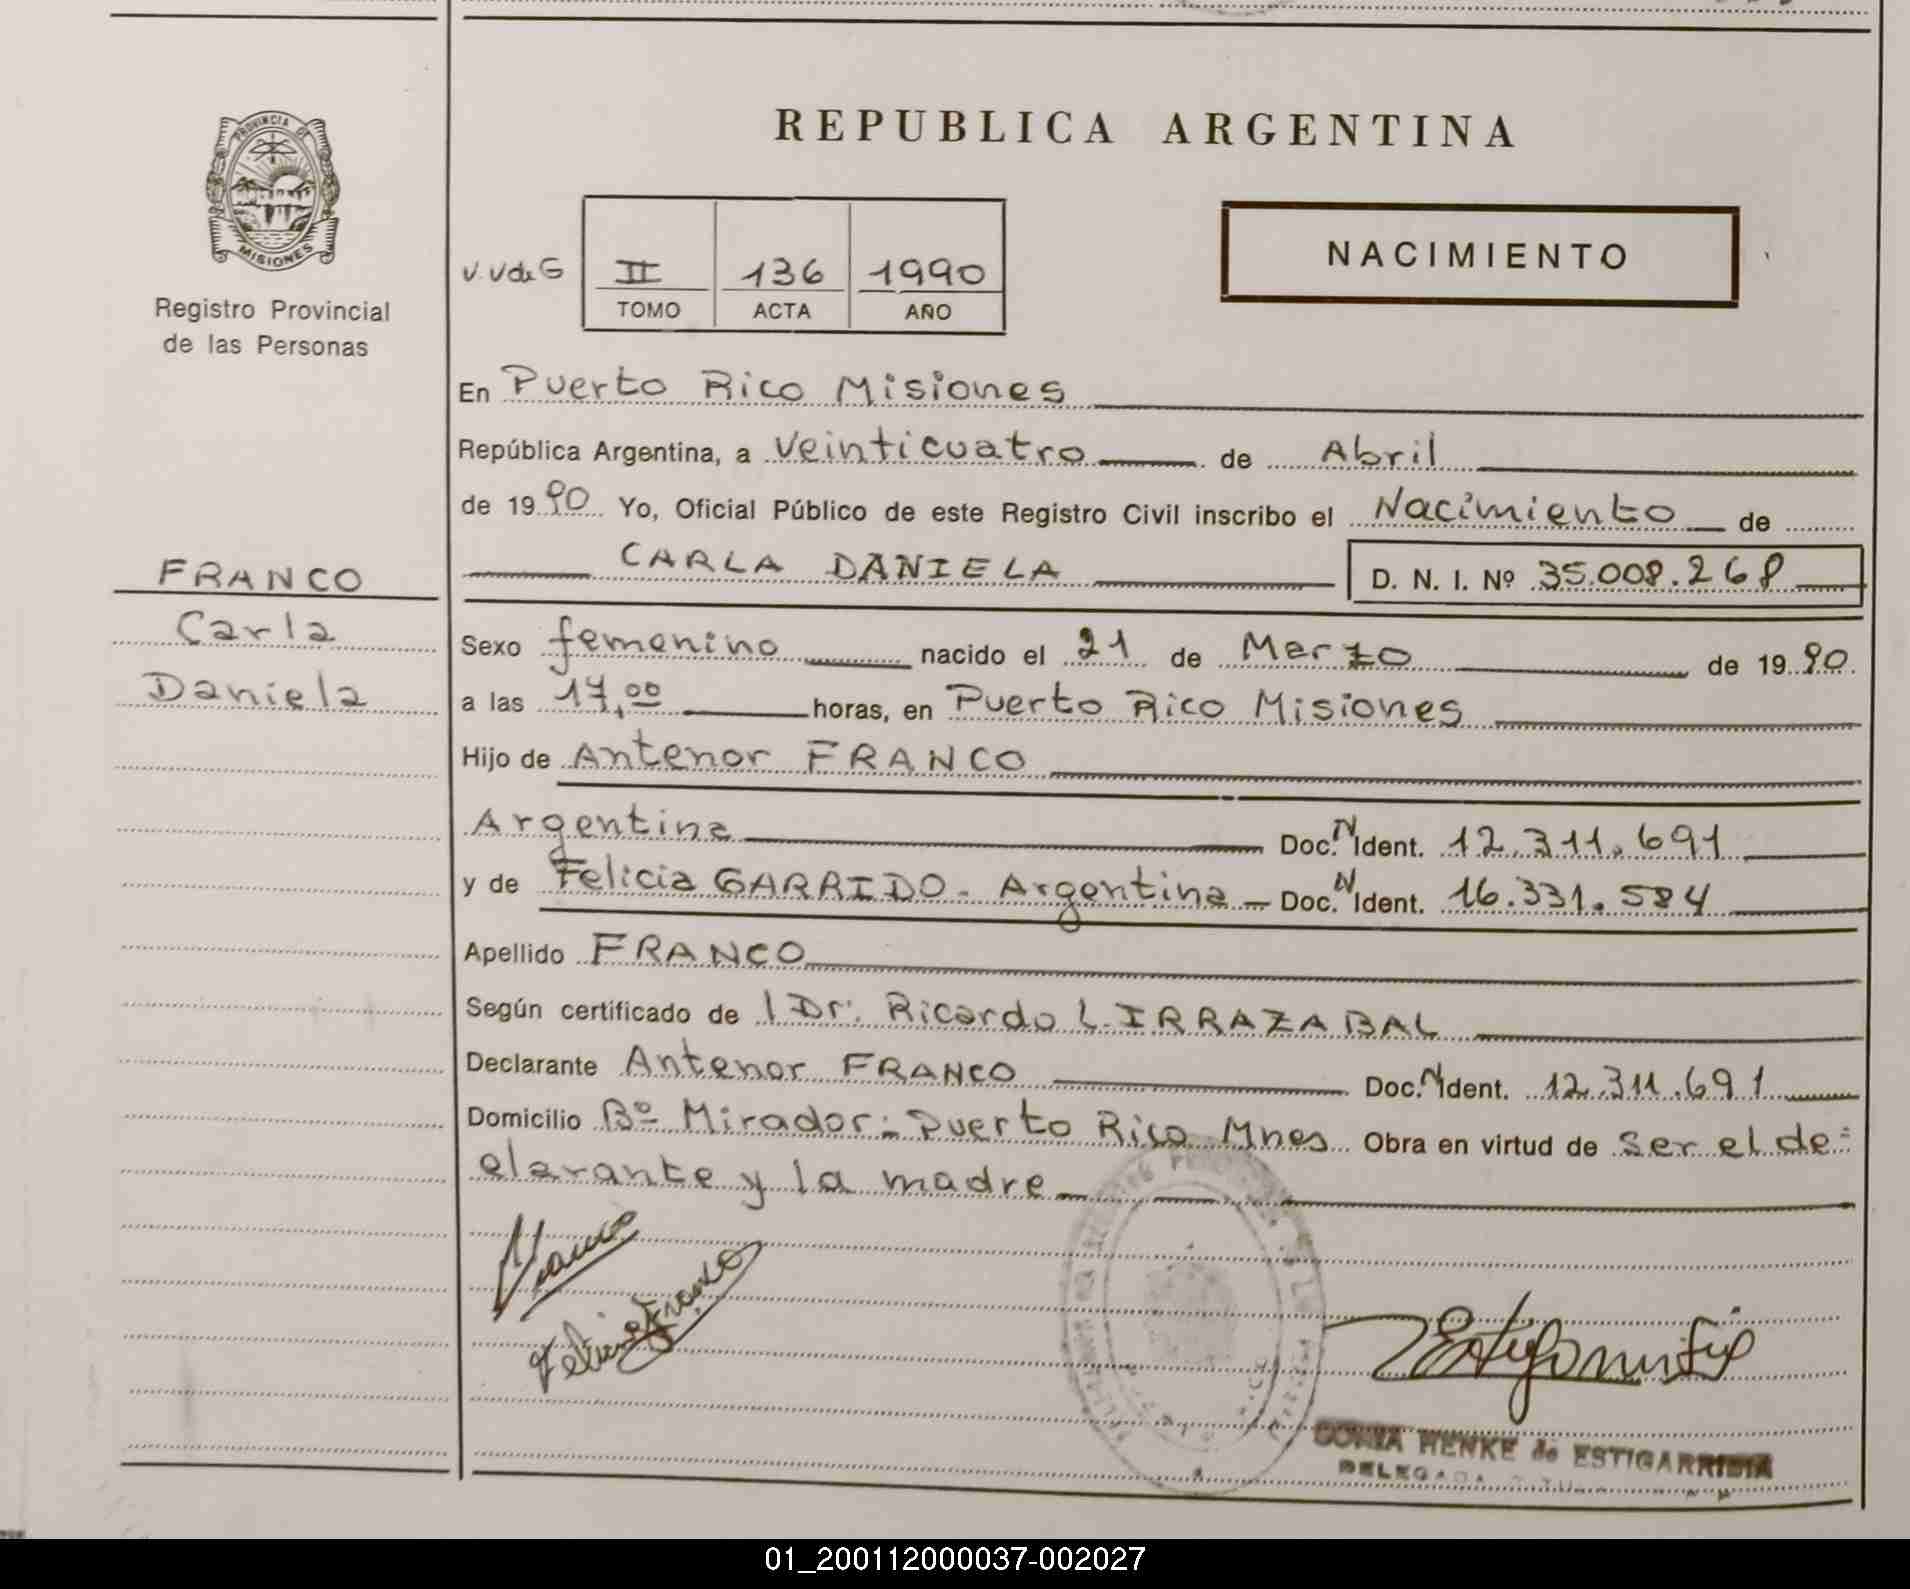 REPUBLICA ARGENTINA
PROVINCIA DE
MISIONES
Registro Provincial
de las Personas
V.VdeG II 136 1990
TOMO ACTA AÑO
NACIMIENTO
En Puerto Rico Misiones
República Argentina, a Veinticuatro de Abril
de 1990 Yo, Oficial Público de este Registro Civil inscribo el Nacimiento de
CARLA DANIELA D. N. I. Nº 35.008.268
FRANCO
Carla
Daniela
Sexo femenino nacido el 21 de Marzo de 1990
a las 17,00 horas, en Puerto Rico Misiones
Hijo de Antenor FRANCO
Argentina Doc. N Ident. 12.311.691
y de Felicia GARRIDO - Argentina - Doc. N Ident. 16.331.584
Apellido FRANCO
Según certificado de l Dr. Ricardo L. IRRAZABAL
Declarante Antenor FRANCO Doc. N Ident. 12.311.691
Domicilio Bº Mirador - Puerto Rico Mnes Obra en virtud de ser el de=
clarante y la madre
Franco
Felicia Franco
HENKE de ESTIGARRIBIA
DELEGADA
01_200112000037-002027